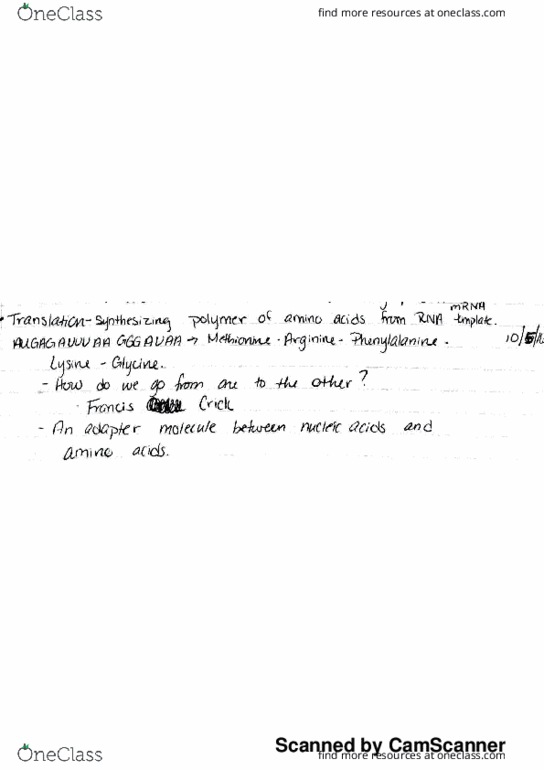 OneClass
find more resources at oneclass.com
mRNA
Translation - Synthesizing polymer of amino acids from RNA template.
AUGAGAUUUAAGGGAUAA → Methionine - Arginine - Phenylalanine -
Lysine - Glycine.
- How do we go from one to the other?
· Francis Crick
- An adapter molecule between nucleic acids and
amino acids.
Scanned by CamScanner
OneClass
find more resources at oneclass.com